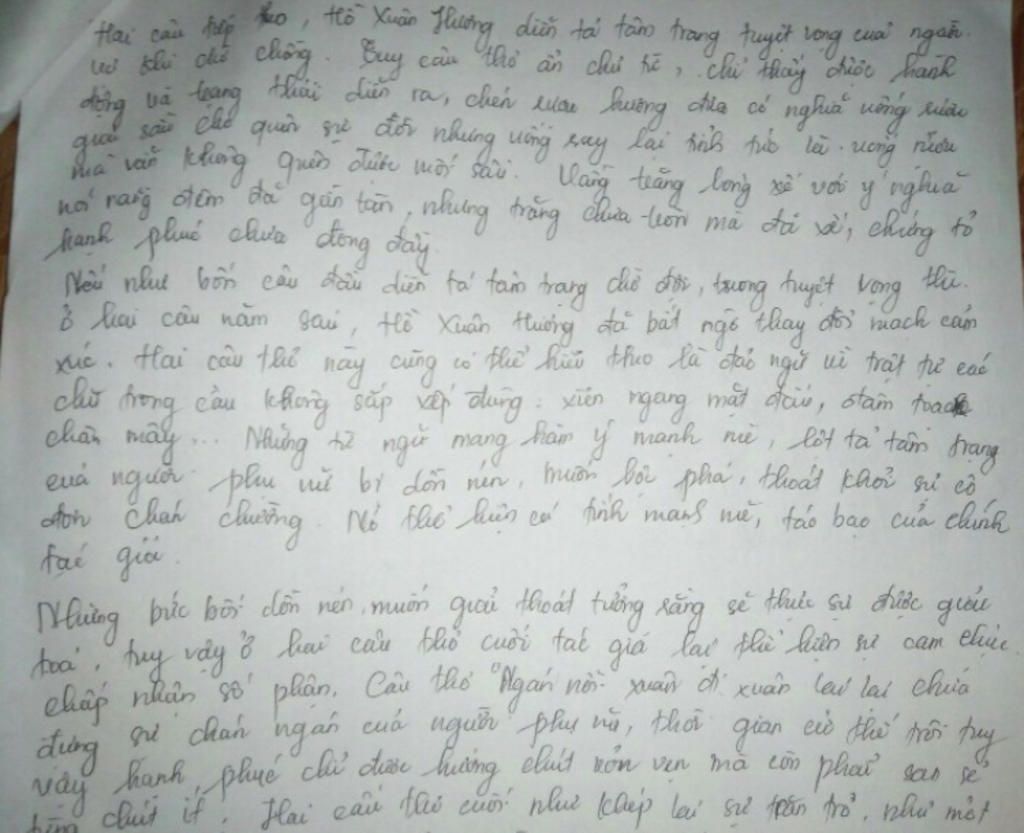 Hai câu tiếp theo, Hồ Xuân Hương diễn tả tâm trạng tuyệt vọng của người
vợ khi chờ chồng. Tuy câu thơ ẩn chủ từ, chỉ thấy được hành
động và trạng thái diễn ra, chén rượu hương đưa có nghĩa uống rượu
giải sầu cho quên sự đời nhưng uống say lại tỉnh tức là uống rượu
mà vẫn không quên được mối sầu. Vầng trăng bóng xế với ý nghĩa
nói rằng đêm đã gần tàn, nhưng trăng chưa tròn mà đã xế, chứng tỏ
hạnh phúc chưa đong đầy.
Nếu như bốn câu đầu diễn tả tâm trạng chờ đợi, tuyệt vọng thì.
ở hai câu năm sau, Hồ Xuân Hương đã bất ngờ thay đổi mạch cảm
xúc. Hai câu thơ này cũng có thể hiểu theo là đảo ngữ vì trật tự các
chữ trong câu không sắp xếp đúng: xiên ngang mặt đất, đâm toạc
chân mây... Những từ ngữ mang hàm ý mạnh mẽ, lột tả tâm trạng
của người phụ nữ bị dồn nén, muốn bứt phá, thoát khỏi sự cô
đơn chán chường. Nó thể hiện cá tính mạnh mẽ, táo bạo của chính
tác giả.
Những bức bối dồn nén, muốn giải thoát tưởng rằng sẽ thực sự được giải
toả, tuy vậy ở hai câu thơ cuối tác giả lại thể hiện sự cam chịu
chấp nhận số phận. Câu thơ "Ngán nỗi xuân đi xuân lại lại chứa
đựng sự chán ngán của người phụ nữ, thời gian cứ thế trôi tuy
vậy hạnh phúc chỉ được hưởng chút vỏn vẹn mà còn phải san sẻ
từng chút ít. Hai câu thơ cuối như khép lại sự trăn trở, như một